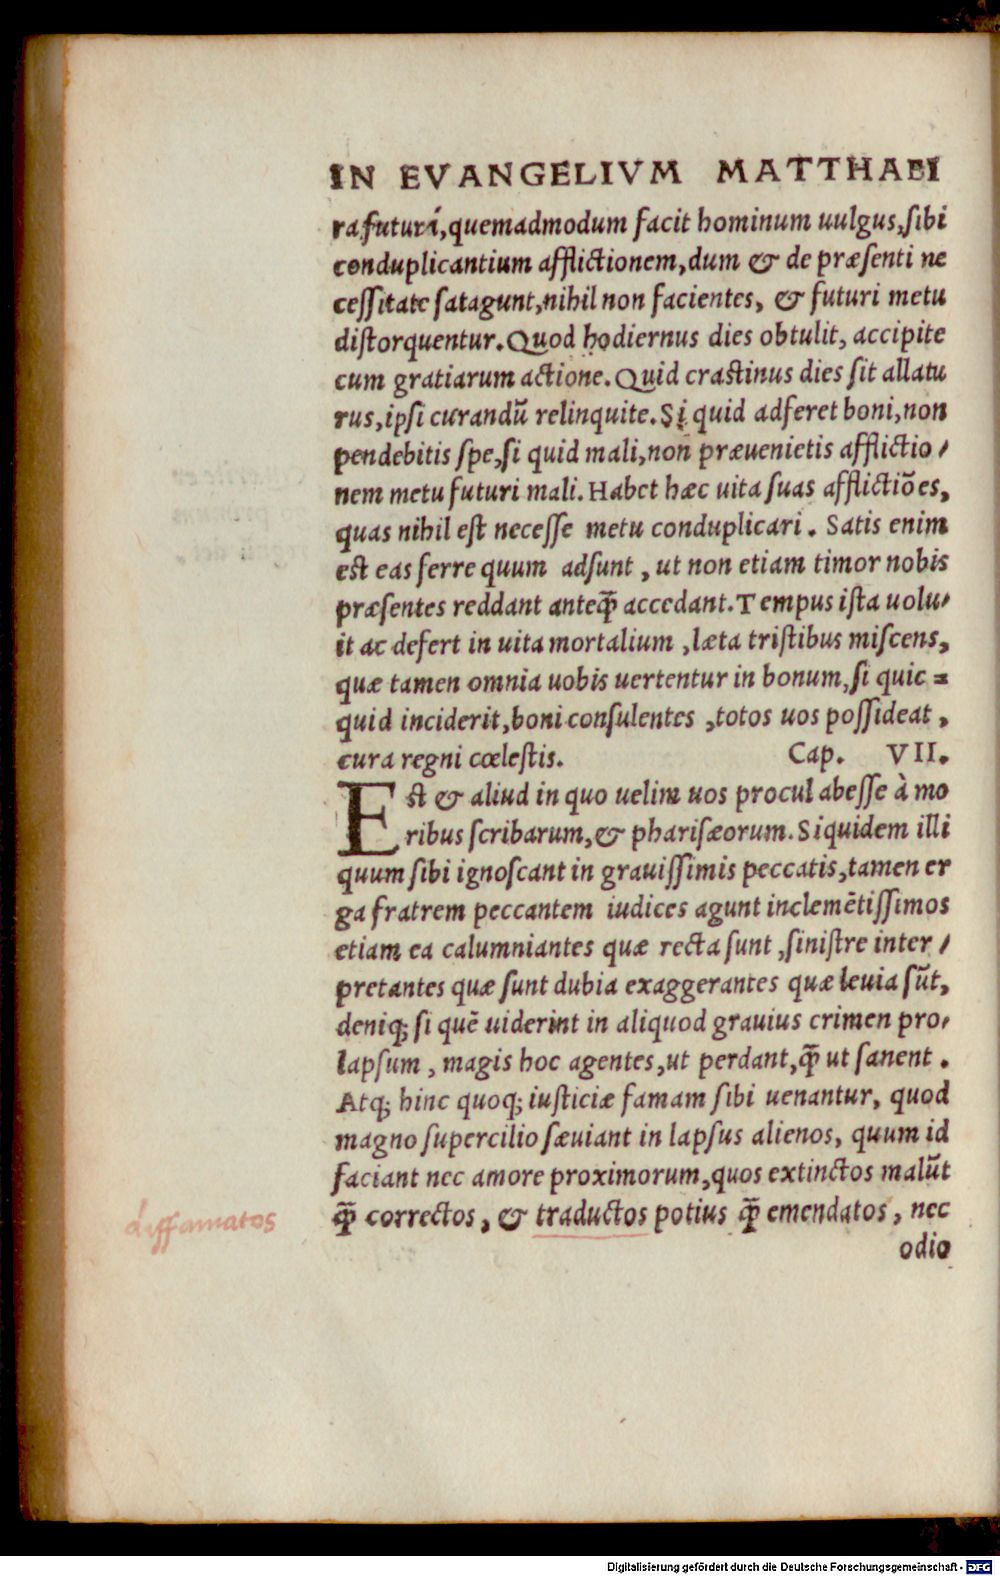 IN EVANGELIVM MATTHAEI
ra futurũ, quemadmodum facit hominum uulgus, sibi
conduplicantium afflictionem, dum & de præsenti ne
cessitate satagunt, nihil non facientes, & futuri metu
distorquentur. Quod hodiernus dies obtulit, accipite
cum gratiarum actione. Quid crastinus dies sit allatu
rus, ipsi curandũ relinquite. Si quid adferet boni, non
pendebitis spe, si quid mali, non præuenietis afflictio⸗
nem metu futuri mali. Habet hæc uita suas afflictiões,
quas nihil est necesse metu conduplicari. Satis enim
est eas ferre quum adsunt, ut non etiam timor nobis
præsentes reddant anteq̃ accedant. Tempus ista uolu⸗
it ac defert in uita mortalium, læta tristibus miscens,
quæ tamen omnia uobis uertentur in bonum, si quic =
quid inciderit, boni consulentes, totos uos possideat,
cura regni cœlestis. Cap. VII.
Est & aliud in quo uelim uos procul abesse à mo
ribus scribarum, & pharisæorum. Siquidem illi
quum sibi ignoscant in grauissimis peccatis, tamen er
ga fratrem peccantem iudices agunt inclemẽtissimos
etiam ea calumniantes quæ recta sunt, sinistre inter⸗
pretantes quæ sunt dubia exaggerantes quæ leuia sũt,
deniq; si quẽ uiderint in aliquod grauius crimen pro⸗
lapsum, magis hoc agentes, ut perdant, q̃ ut sanent.
Atq; hinc quoq; iusticiæ famam sibi uenantur, quod
magno supercilio sæuiant in lapsus alienos, quum id
faciant nec amore proximorum, quos extinctos malũt
q̃ correctos, & traductos potius q̃ emendatos, nec
odio
diffamatos
Digitalisierung gefördert durch die Deutsche Forschungsgemeinschaft - DFG